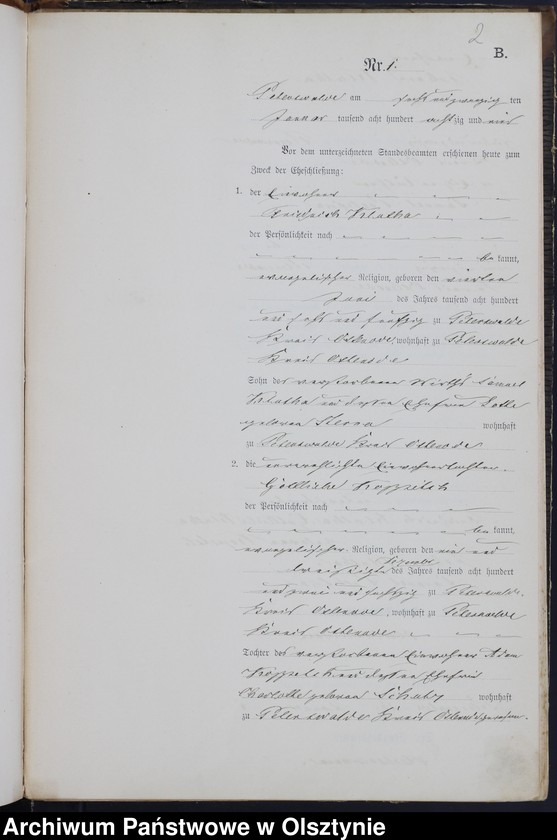 2
B.
Nr. 1.
Peterswalde am sechs und zwanzig ten
Januar tausend acht hundert achtzig und
Vor dem unterzeichneten Standesbeamten erschienen heute zum
Zweck der Eheschließung:
1. der Einwohner
Friedrich
der Persönlichkeit nach
be kannt,
evangelischer Religion, geboren den vierten
Juni des Jahres tausend acht hundert
und fünfzig zu Peterswalde
Kreis Osterode, wohnhaft zu Peterswalde
Kreis Osterode
Sohn des verstorbenen Wirths Samuel
und dessen Ehefrau Lotte
geborene wohnhaft
zu Peterswalde Kreis Osterode
2. die unverehelichte Einwohnertochter
Gottliebe Koppetsch
der Persönlichkeit nach
be kannt,
evangelischer Religion, geboren den ein und
dreißigsten Dezember des Jahres tausend acht hundert
und zu Peterswalde,
Kreis Osterode, wohnhaft zu Peterswalde
Kreis Osterode
Tochter des verstorbenen Einwohner Adam
Koppetsch und dessen Ehefrau
Charlotte geborene Schulz wohnhaft
zu Peterswalde Kreis Osterode gewesen.
Archiwum Państwowe w Olsztynie